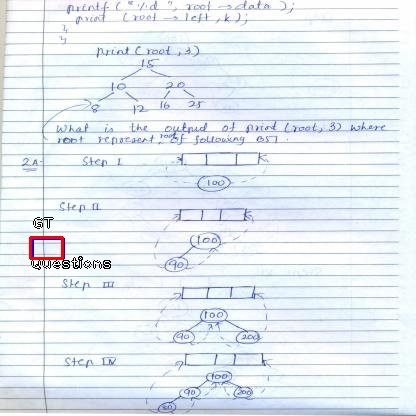 printf ("%d", root → data);
print (root → left, k);
}
}
print (root, 3)
15
10 20
8 12 16 25
What is the output of print (root, 3) where
root represent, root of following BST.
2A- Step I
100
Step II
100
90
GT
Questions
Step III
100
90 200
Step IV
100
90 200